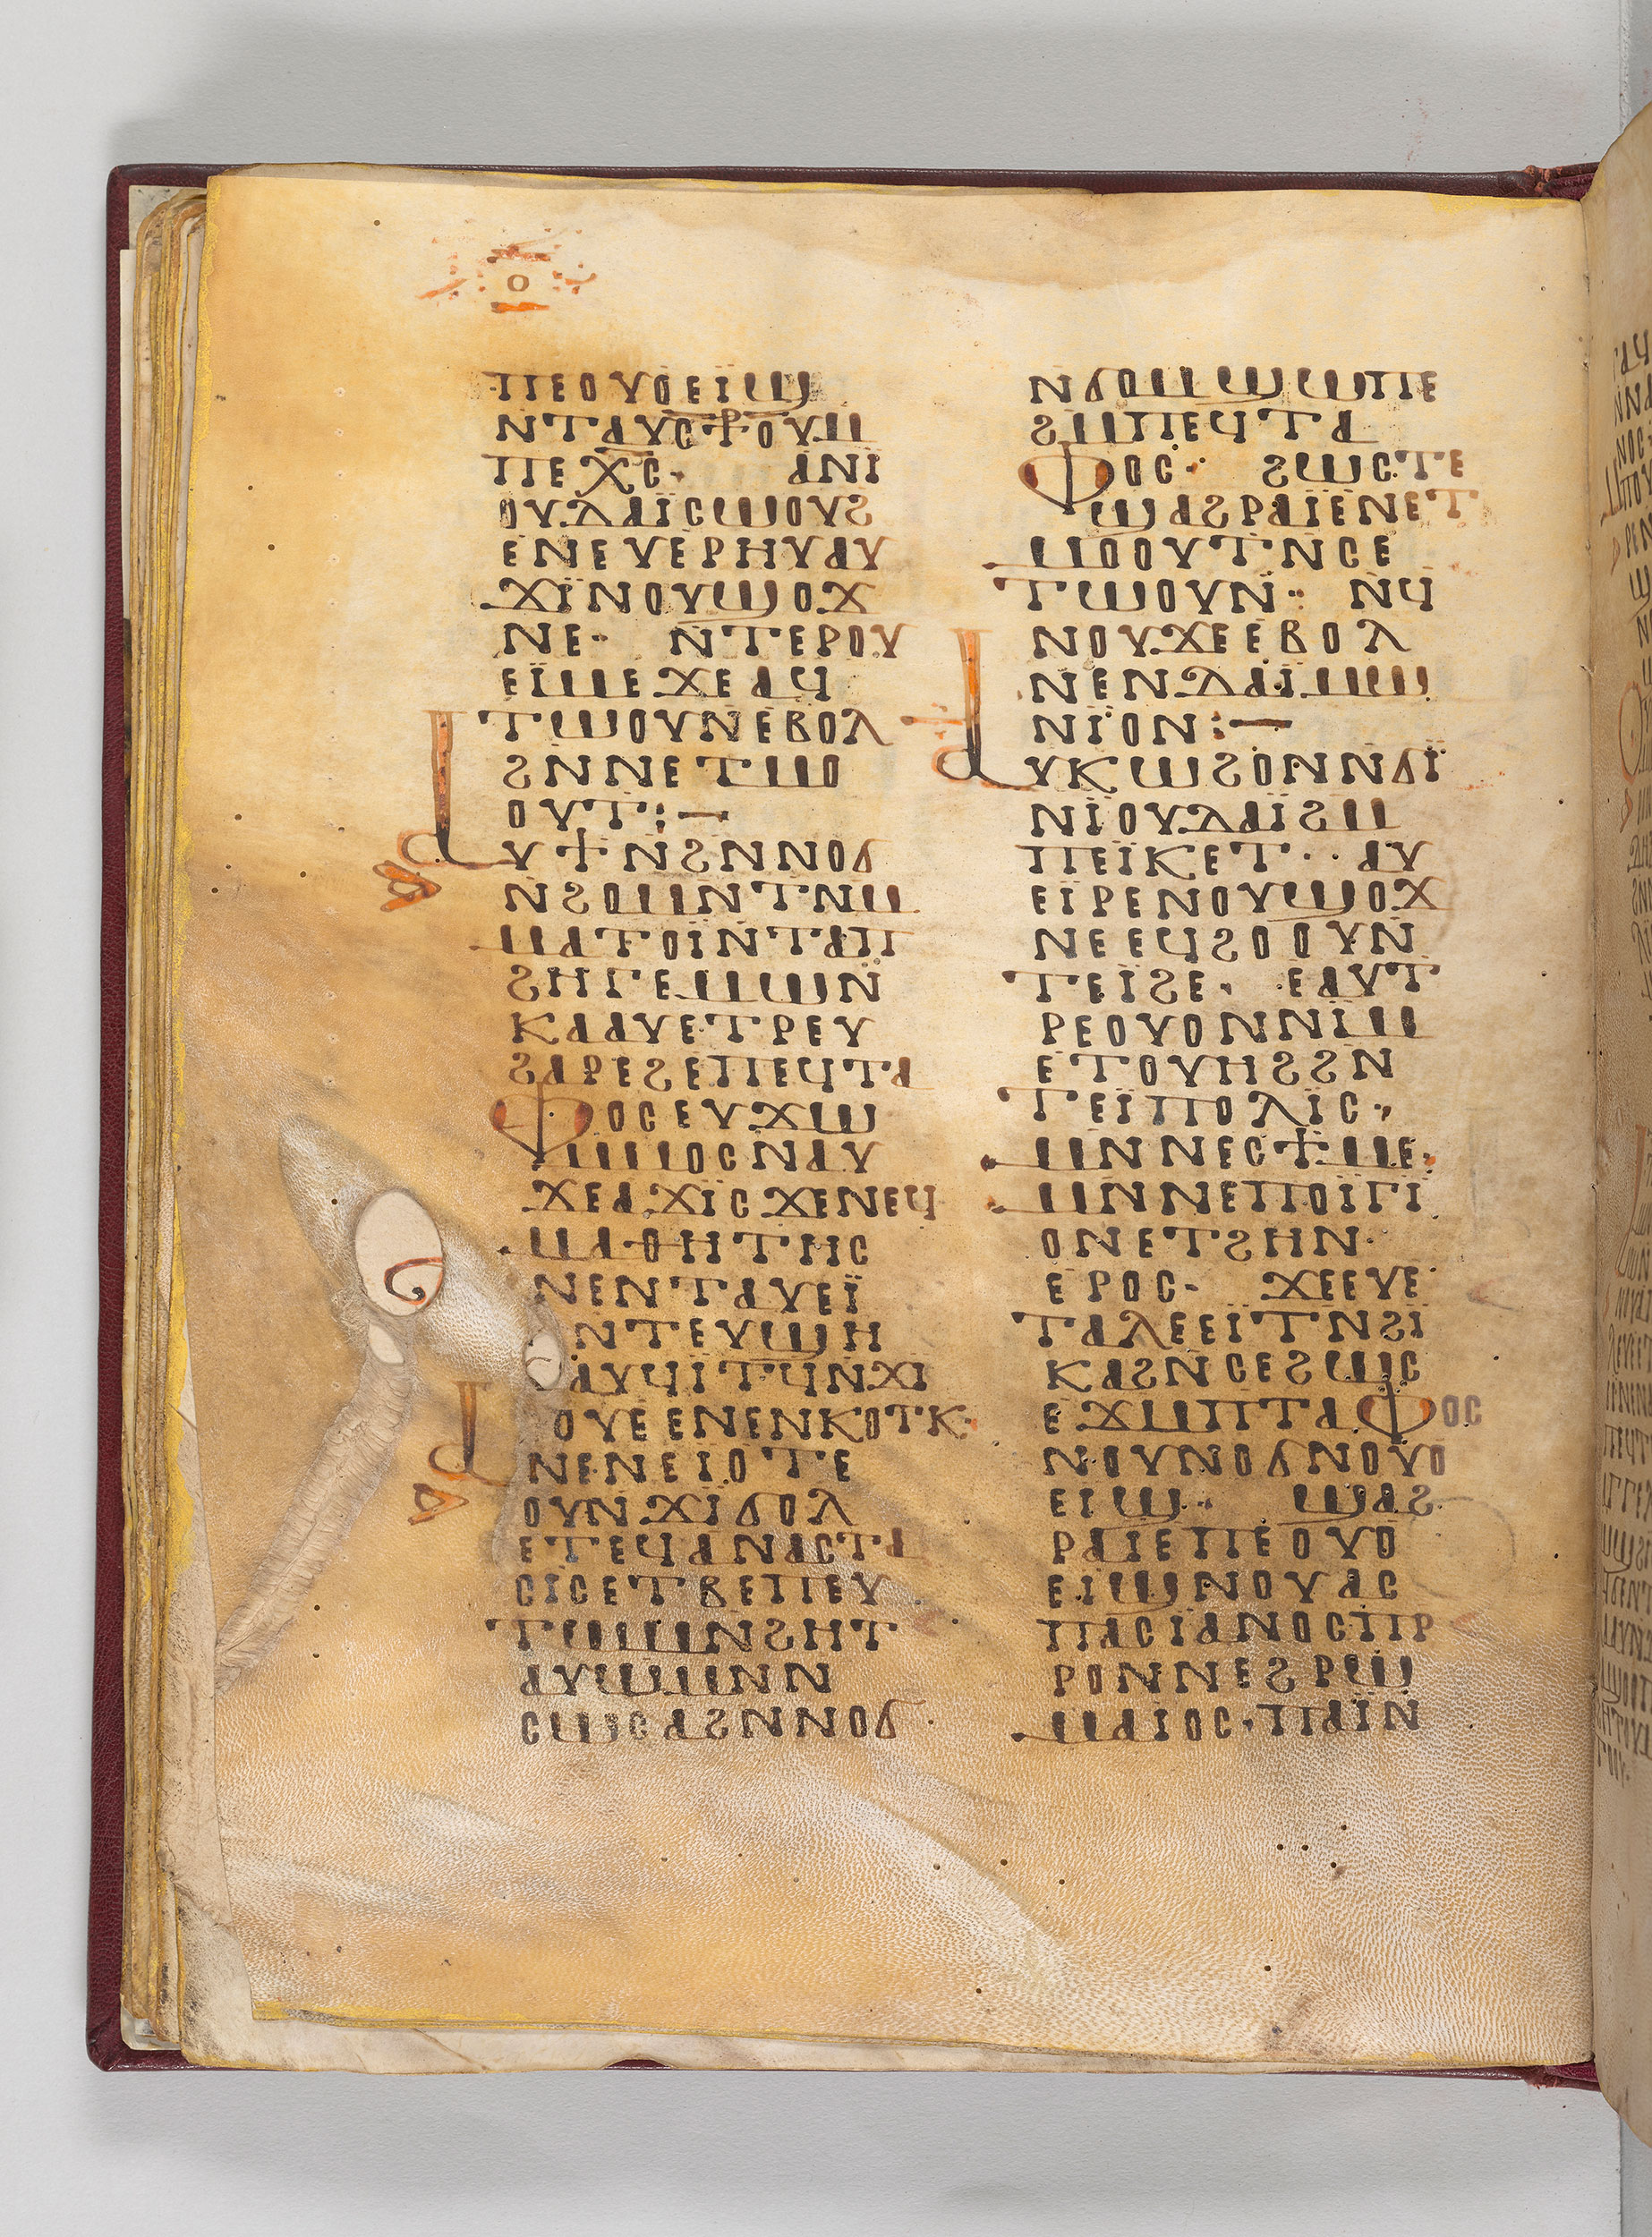 ⲟ
ⲡⲉⲟⲩⲟⲉⲓϣ
ⲛⲧⲁⲩⲥ⳨ⲟⲩⲙ
ⲡⲉⲭⲥ· ⲁⲛⲓ
ⲟⲩⲇⲁⲓⲥⲱⲟⲩϩ
ⲉⲛⲉⲩⲉⲣⲏⲩⲁⲩ
ϫⲓⲛⲟⲩϣⲟϫ
ⲛⲉ· ⲛⲧⲉⲣⲟⲩ
ⲉⲓⲙⲉϫⲉⲁϥ
ⲧⲱⲟⲩⲛⲉⲃⲟⲗ
ϩⲛⲛⲉⲧⲙⲟ
ⲟⲩⲧ:—
ⲁⲩϯⲛϩⲛⲛⲟϭ
ⲛϩⲟⲙⲛⲧⲛⲙ
ⲙⲁⲧⲟⲓⲛⲧⲁⲡ
ϩⲏⲅⲉⲙⲱⲛ
ⲕⲁⲁⲩⲉⲧⲣⲉⲩ
ϩⲁⲣⲉϩⲉⲡⲉϥⲧⲁ
ⲫⲟⲥⲉⲩϫⲱ
ⲙⲙⲟⲥⲛⲁⲩ
ϫⲉⲁϫⲓⲥϫⲉⲛⲉϥ
ⲙⲁⲑⲏⲧⲏⲥ
ⲛⲉⲛⲧⲁⲩⲉⲓ
ⲛⲧⲉⲩϣⲏ
ⲁⲩϥⲓⲧϥⲛϫⲓ
ⲟⲩⲉⲉⲛⲉⲛⲕⲟⲧⲕ·
ⲁⲛⲉⲛⲉⲓⲟⲧⲉ
ⲟⲩⲛϫⲓϭⲟⲗ
ⲉⲧⲉϥⲁⲛⲁⲥⲧⲁ
ⲥⲓⲥⲉⲧⲃⲉⲡⲉⲩ
ⲧⲱⲙⲛϩⲏⲧ
ⲁⲩⲱⲙⲛⲛ
ⲥⲱⲥⲁϩⲛⲛⲟϭ
ⲛϭⲟⲙϣⲱⲡⲉ
ϩⲙⲡⲉϥⲧⲁ
ⲫⲟⲥ· ϩⲱⲥⲧⲉ
ϣⲁϩⲣⲁⲓⲉⲛⲉⲧ
ⲙⲟⲟⲩⲧⲛⲥⲉ
ⲧⲱⲟⲩⲛ: ⲛϥ
ⲛⲟⲩϫⲉⲉⲃⲟⲗ
ⲛⲉⲛⲇⲁⲓⲙⲱ
ⲛⲓⲟⲛ:—
ⲁⲩⲕⲱϩⲟⲛⲛϭⲓ
ⲛⲓⲟⲩⲇⲁⲓϩⲙ
ⲡⲉⲓⲕⲉⲧ·· ⲁⲩ
ⲉⲓⲣⲉⲛⲟⲩϣⲟϫ
ⲛⲉⲉϥϩⲟⲟⲩⲛ
ⲧⲉⲓϩⲉ· ⲉⲁⲩⲧ
ⲣⲉⲟⲩⲟⲛⲛⲓⲙ
ⲉⲧⲟⲩⲏϩϩⲛ
ⲧⲉⲓⲡⲟⲗⲓⲥ·
ⲙⲛⲛⲉⲥϯⲙⲉ·
ⲙⲛⲛⲉⲡⲟⲓⲅⲓ
ⲟⲛⲉⲧϩⲏⲛ·
ⲉⲣⲟⲥ· ϫⲉⲉⲩⲉ
ⲧⲁⲗⲉⲉⲓⲧⲛϩⲓ
ⲕⲁϩⲛⲥⲉϩⲱⲥ
ⲉϫⲙⲡⲧⲁⲫⲟⲥ
ⲛⲟⲩⲛⲟϭⲛⲟⲩⲟ
ⲉⲓϣ· ϣⲁϩ
ⲣⲁⲓⲉⲡⲉⲟⲩⲟ
ⲉⲓϣⲛⲟⲩⲁⲥ
ⲡⲁⲥⲓⲁⲛⲟⲥⲡⲣ
ⲣⲟⲛⲛⲉϩⲣⲱ
ⲙⲁⲓⲟⲥ·ⲡⲁⲓⲛ